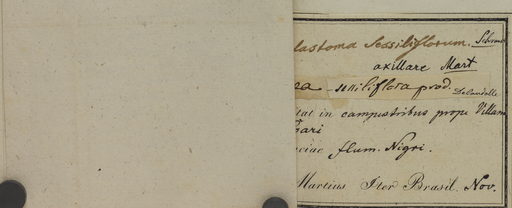 lastoma sessiliflorum. Schrank
axillare Mart
sessiliflora prod. Decandolle
itat in campestribus prope Villam
Bari
nciae flum. Nigri.
Martius Iter Brasil. Nov.